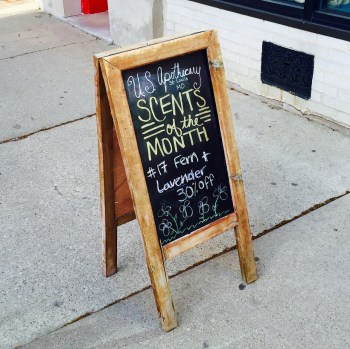 U.S. Apothecary
St. Louis
MO
SCENTS
of the
MONTH
#17 Fern +
Lavender
30% off